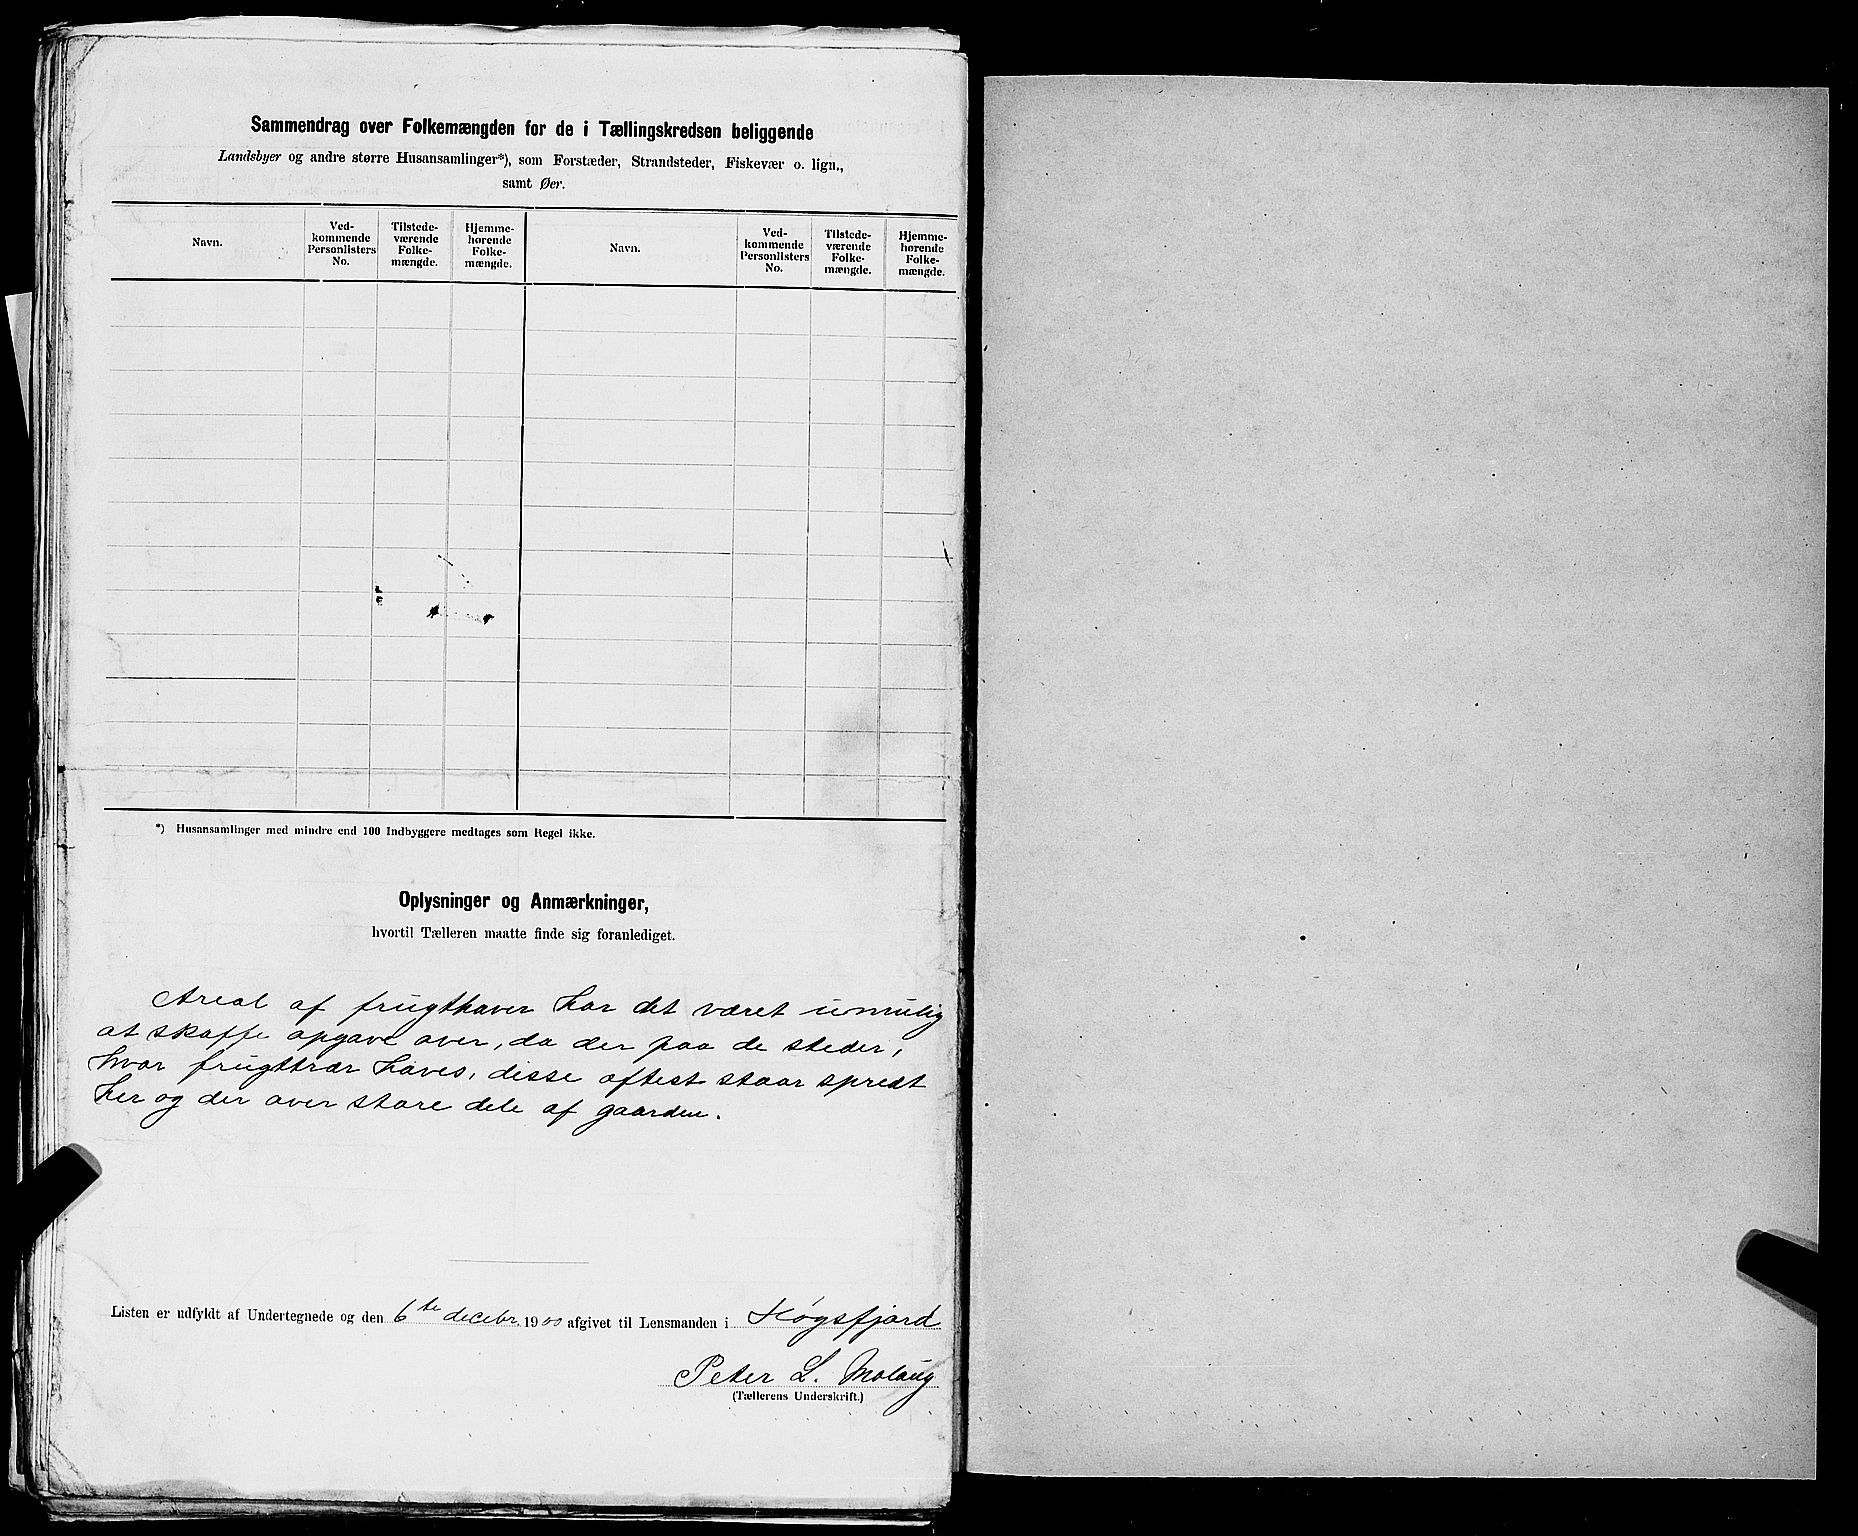 Sammendrag over Folkemængden for de i Tællingskredsen beliggende
Landsbyer og andre større Husansamlinger*), som Forstæder, Strandsteder, Fiskevær o. lign.,
samt Øer.
Navn. Ved-kommende Personlisters No. Tilstede-værende Folke-mængde. Hjemme-hørende Folke-mængde. Navn. Ved-kommende Personlisters No. Tilstede-værende Folke-mængde. Hjemme-hørende Folke-mængde.
*) Husansamlinger med mindre end 100 Indbyggere medtages som Regel ikke.
Oplysninger og Anmærkninger,
hvortil Tælleren maatte finde sig foranlediget.
Areal af frugthaver har det været umulig
at skaffe opgave over, da der paa de steder,
hvor frugttrær haves, disse oftest staar spredt
her og der over store dele af gaarden.
Listen er udfyldt af Undertegnede og den 6te decebr. 1900 afgivet til Lensmanden i Høgsfjord
Peter L. Molaug
(Tællerens Underskrift.)